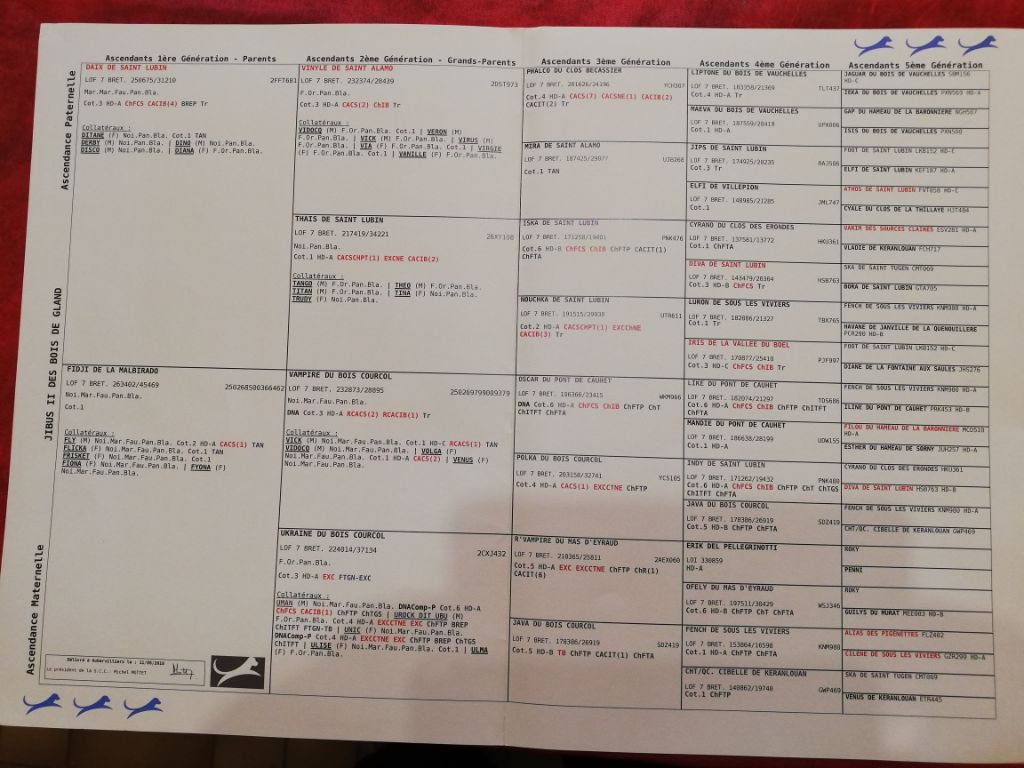 Ascendants 1ère Génération - Parents
Ascendants 2ème Génération - Grands-Parents
Ascendants 3ème Génération
Ascendants 4ème Génération
Ascendants 5ème Génération
Ascendance Paternelle
JIBUS II DES BOIS DE GLAND
Ascendance Maternelle
DAIX DE SAINT LUBIN
LOF 7 BRET. 250675/31210 2FFT681
Mar.Mar.Fau.Pan.Bla.
Cot.3 HD-A ChFCS CACIB(4) BREP Tr
Collatéraux :
DITANE (F) Noi.Pan.Bla. Cot.1 TAN
DERBY (M) Noi.Pan.Bla. | DINO (M) Noi.Pan.Bla.
DISCO (M) Noi.Pan.Bla. | DIANA (F) F.Or.Pan.Bla.
FIDJI DE LA MALBIRADO
LOF 7 BRET. 263402/45469 250268500366462
Noi.Mar.Fau.Pan.Bla.
Cot.1
Collatéraux :
FLY (M) Noi.Mar.Fau.Pan.Bla. Cot.2 HD-A CACS(1) TAN
FLICKA (F) Noi.Mar.Fau.Pan.Bla. Cot.1 TAN
FRISKET (F) Noi.Mar.Fau.Pan.Bla. Cot.1
FIONA (F) Noi.Mar.Fau.Pan.Bla. | FYONA (F)
Noi.Mar.Fau.Pan.Bla.
Délivré à Aubervilliers le : 11/06/2019
Le président de la S.C.C.: Michel MOTTET
VINYLE DE SAINT ALAMO
LOF 7 BRET. 232374/28439 2DST973
F.Or.Pan.Bla.
Cot.3 HD-A CACS(2) ChIB Tr
Collatéraux :
VIDOCQ (M) F.Or.Pan.Bla. Cot.1 | VERON (M)
F.Or.Pan.Bla. | VICK (M) F.Or.Pan.Bla. | VIRUS (M)
F.Or.Pan.Bla. | VIA (F) F.Or.Pan.Bla. | VIRGIE
(F) F.Or.Pan.Bla. Cot.1 | VANILLE (F) F.Or.Pan.Bla.
THAIS DE SAINT LUBIN
LOF 7 BRET. 217419/34221 26XY108
Noi.Pan.Bla.
Cot.1 HD-A CACSCHPT(1) EXCNE CACIB(2)
Collatéraux :
TANGO (M) F.Or.Pan.Bla. | THEO (M) F.Or.Pan.Bla.
TITAN (M) F.Or.Pan.Bla. | TINA (F) Noi.Pan.Bla.
TRUDY (F) Noi.Pan.Bla.
VAMPIRE DU BOIS COURCOL
LOF 7 BRET. 232873/28895 250269799009379
Noi.Mar.Fau.Pan.Bla.
DNA Cot.3 HD-A RCACS(2) RCACIB(1) Tr
Collatéraux :
VICK (M) Noi.Mar.Fau.Pan.Bla. Cot.1 HD-C RCACS(1) TAN
VIDOCQ (M) Noi.Mar.Fau.Pan.Bla. | VOLGA (F)
Noi.Mar.Fau.Pan.Bla. Cot.1 HD-A CACS(2) | VENUS (F)
Noi.Mar.Fau.Pan.Bla.
UKRAINE DU BOIS COURCOL
LOF 7 BRET. 224014/37134 2CXJ432
F.Or.Pan.Bla.
Cot.3 HD-A EXC FTGN-EXC
Collatéraux :
UMAN (M) Noi.Mar.Fau.Pan.Bla. DNAComp-P Cot.6 HD-A
ChFCS CACIB(1) ChFTP ChTGS | UROCK DIT UBU (M)
F.Or.Pan.Bla. Cot.4 HD-A EXCCTNE EXC ChFTP BREP
ChITFT FTGN-TB | UNIC (F) Noi.Mar.Fau.Pan.Bla.
DNAComp-P Cot.4 HD-A EXCCTNE EXC ChFTP BREP ChTGS
ChITFT | ULISE (F) Noi.Mar.Fau.Pan.Bla. Cot.1 | ULMA
(F) F.Or.Pan.Bla.
PHALCO DU CLOS BECASSIER
LOF 7 BRET. 201626/24196 YCH307
Cot.4 HD-A CACS(7) CACSNE(1) CACIB(2)
CACIT(2) Tr
MIRA DE SAINT ALAMO
LOF 7 BRET. 187425/29077 UJB266
Cot.1 TAN
ISKA DE SAINT LUBIN
LOF 7 BRET. 171258/19401 PNK476
Cot.6 HD-B ChFCS ChIB ChFTP CACIT(1)
ChFTA
NOUCHKA DE SAINT LUBIN
LOF 7 BRET. 191515/29938 UTR611
Cot.2 HD-A CACSCHPT(1) EXCCHNE
CACIB(3) Tr
OSCAR DU PONT DE CAUHET
LOF 7 BRET. 196366/23415 WKM966
DNA Cot.6 HD-A ChFCS ChIB ChFTP ChT
ChITFT ChFTA
POLKA DU BOIS COURCOL
LOF 7 BRET. 203158/32741 YCS105
Cot.4 HD-A CACS(1) EXCCTNE ChFTP
R'VAMPIRE DU MAS D'EYRAUD
LOF 7 BRET. 210365/25811 2AEX060
Cot.5 HD-A EXC EXCCTNE ChFTP ChR(1)
CACIT(6)
JAVA DU BOIS COURCOL
LOF 7 BRET. 178386/26919 SDZ419
Cot.5 HD-B TB ChFTP CACIT(1) ChFTA
LIPTONE DU BOIS DE VAUCHELLES
LOF 7 BRET. 183358/21369 TLT437
Cot.4 HD-A Tr
MAEVA DU BOIS DE VAUCHELLES
LOF 7 BRET. 187559/28419
Cot.1 HD-A
JIPS DE SAINT LUBIN
LOF 7 BRET. 174925/20235 RAJ586
Cot.3 Tr
ELFI DE VILLEPION
LOF 7 BRET. 148985/21285 JML747
Cot.1
CYRANO DU CLOS DES ERONDES
LOF 7 BRET. 137581/13772 HKU361
Cot.1 ChFTA
DIVA DE SAINT LUBIN
LOF 7 BRET. 143479/20364 HSB763
Cot.3 HD-B ChFCS Tr
LURON DE SOUS LES VIVIERS
LOF 7 BRET. 182086/21327 TBX765
Cot.1 Tr
IRIS DE LA VALLEE DU BOEL
LOF 7 BRET. 170877/25410 PJF997
Cot.3 HD-C ChFCS ChIB Tr
LIKE DU PONT DE CAUHET
LOF 7 BRET. 182074/21297 TDS686
Cot.6 HD-A ChFCS ChIB ChFTP ChITFT
ChFTA
MANDIE DU PONT DE CAUHET
LOF 7 BRET. 186638/28199 UDW155
Cot.1 HD-A
INDY DE SAINT LUBIN
LOF 7 BRET. 171262/19432 PNK480
Cot.6 HD-A ChFCS ChIB ChFTP ChT ChTGS
ChITFT ChFTA
JAVA DU BOIS COURCOL
LOF 7 BRET. 178386/26919 SDZ419
Cot.5 HD-B ChFTP ChFTA
ERIK DEL PELLEGRINOTTI
LOI 330859
HD-A
OFELY DU MAS D'EYRAUD
LOF 7 BRET. 197511/30429 WSJ346
Cot.6 HD-B ChFTP ChT ChFTA
FENCH DE SOUS LES VIVIERS
LOF 7 BRET. 153864/16598 KNM980
Cot.1 HD-A ChFTP ChFTA
CHT/QC. CIBELLE DE KERANLOUAN
LOF 7 BRET. 140862/19740 GWP469
Cot.1 ChFTP
JAGUAR DU BOIS DE VAUCHELLES SBM156
HD-C
IEKA DU BOIS DE VAUCHELLES PXN569 HD-A
GAP DU HAMEAU DE LA BARONNIERE NGH507
ISIS DU BOIS DE VAUCHELLES PXN580
FOOT DE SAINT LUBIN LKB152 HD-C
ELFI DE SAINT LUBIN KEF187 HD-A
ATHOS DE SAINT LUBIN FVT858 HD-C
CYALE DU CLOS DE LA THILLAYE HJT484
VAKIR DES SOURCES CLAIRES ESV281 HD-A
VLADIE DE KERANLOUAN FCH717
SKA DE SAINT TUGEN CMT069
BORA DE SAINT LUBIN GTA705
FENCH DE SOUS LES VIVIERS KNM980 HD-A
HAVANE DE JANVILLE DE LA QUENOUILLERE
PCR290 HD-B
FOOT DE SAINT LUBIN LKB152 HD-C
DIANE DE LA FONTAINE AUX SAULES JHS276
FENCH DE SOUS LES VIVIERS KNM980 HD-A
ILINE DU PONT DE CAUHET PRK453 HD-B
FILOU DU HAMEAU DE LA BARONNIERE MCD510
HD-A
ESTHER DU HAMEAU DE SORNY JUH257 HD-A
CYRANO DU CLOS DES ERONDES HKU361
DIVA DE SAINT LUBIN HSB763 HD-B
FENCH DE SOUS LES VIVIERS KNM980 HD-A
CHT/QC. CIBELLE DE KERANLOUAN GWP469
ROKY
PENNI
ROKY
GUILYS DU MURAT MEI903 HD-B
ALIAS DES PIGENETTES FLZ402
CILENE DE SOUS LES VIVIERS GZR299 HD-A
SKA DE SAINT TUGEN CMT069
VENUS DE KERANLOUAN ETR445